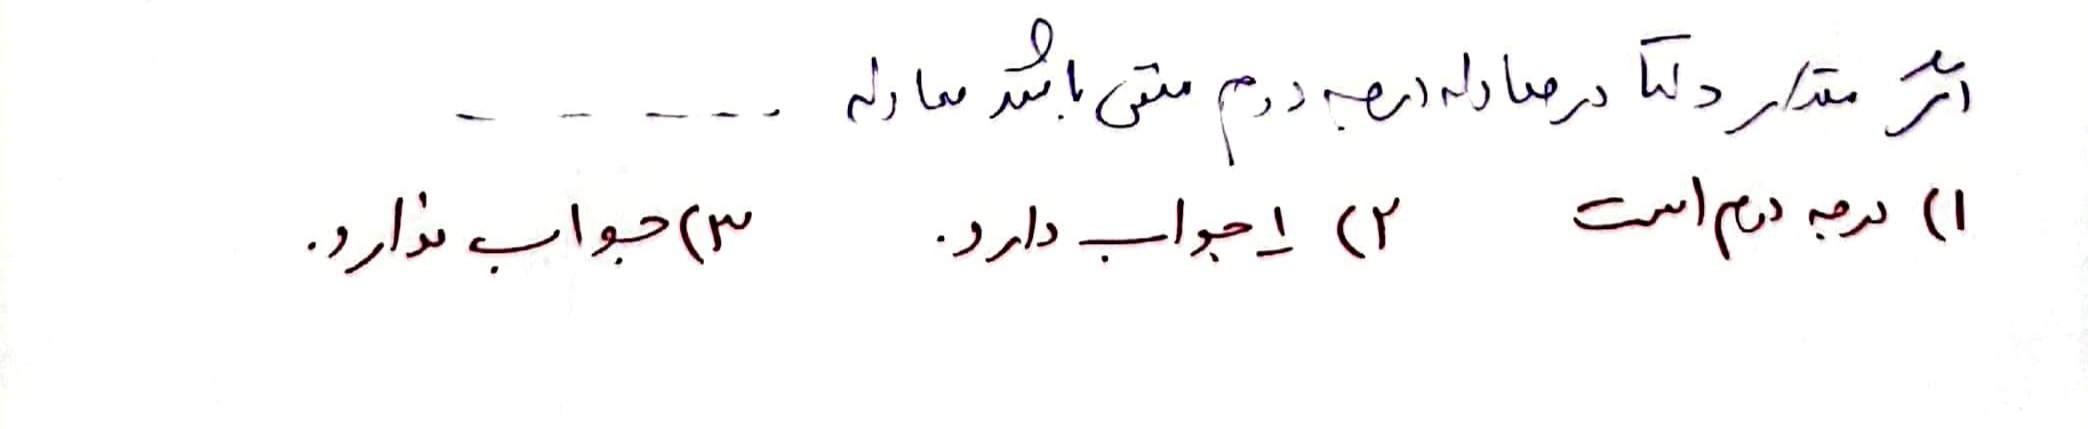 اگر مقدار دلتا در معادله درجه دوم منفی باشد معادله - - - - -
۱) درجه دوم است ۲) ۱ جواب دارد. ۳) جواب ندارد.